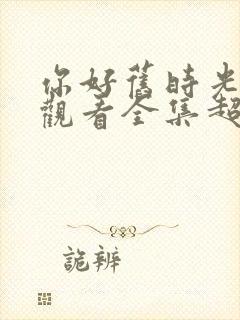 你好舊時光
觀看全集超
詭辨